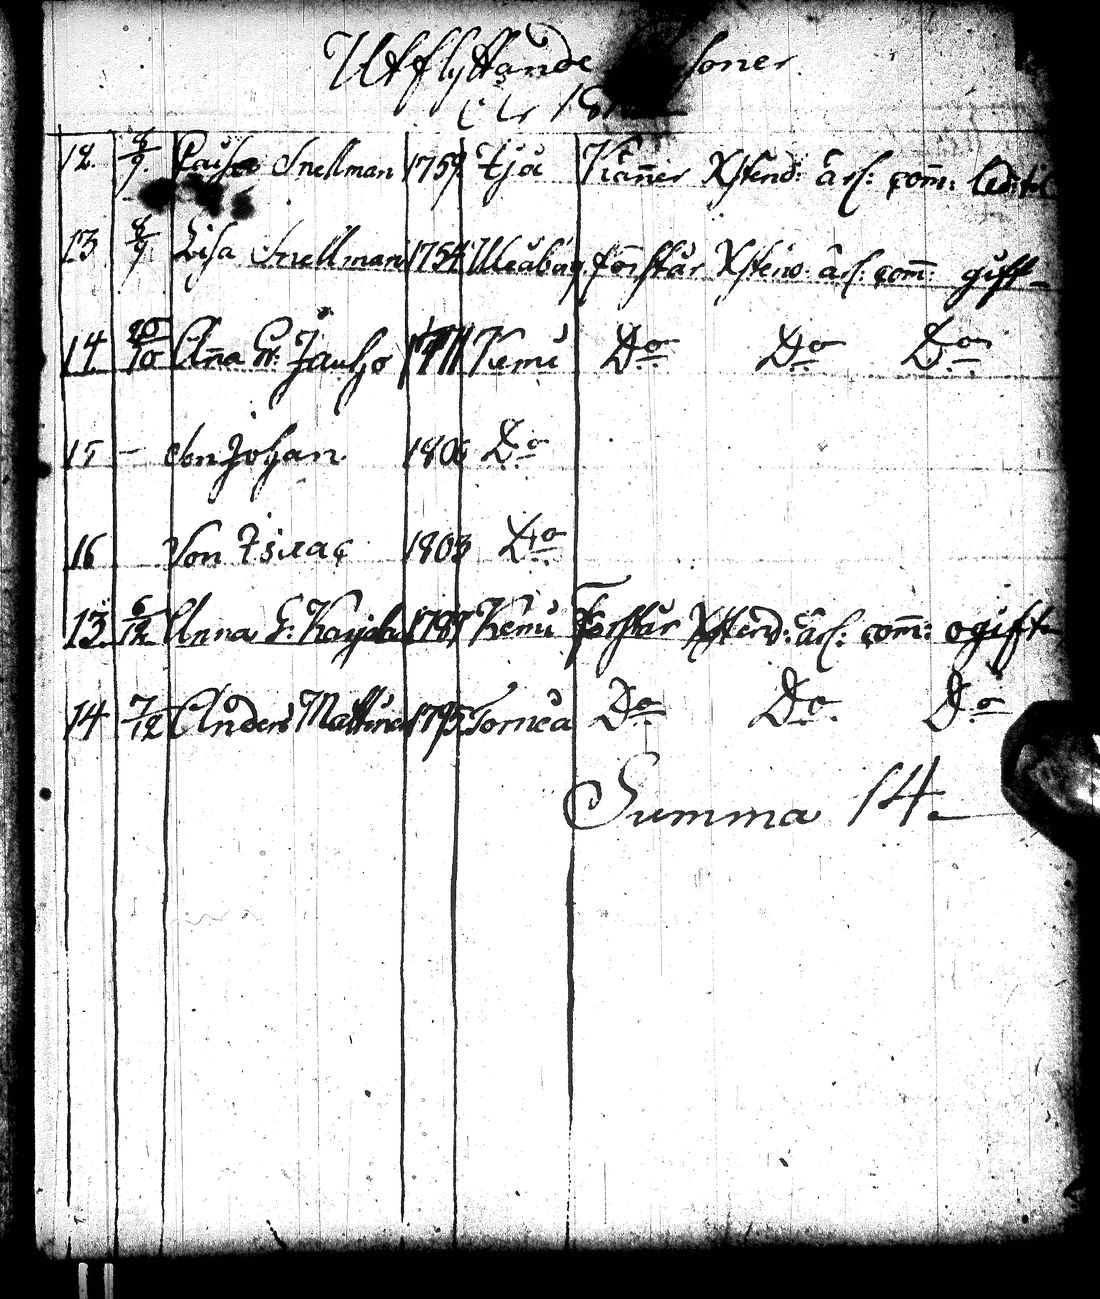 Utflyttande soner
År 18
12. 8/9. Snellman 1759 Ijå Känner Xstend: ärl: com:
13 8/9 Lisa Snellman 1754 Uleåborg förstår Xstend: ärl: com: gift
14. 20/10 Aña Gr: 1771 Kemi Do Do Do
15 - Son Johan 1806 Do
16 Son Isaac 1803 Do
13. 6/12 Anna G: 1787 Kemi Förstår Xstend: ärl: com: ogift
14 7/12 Anders 1795 Torneå Do Do Do
Summa 14.